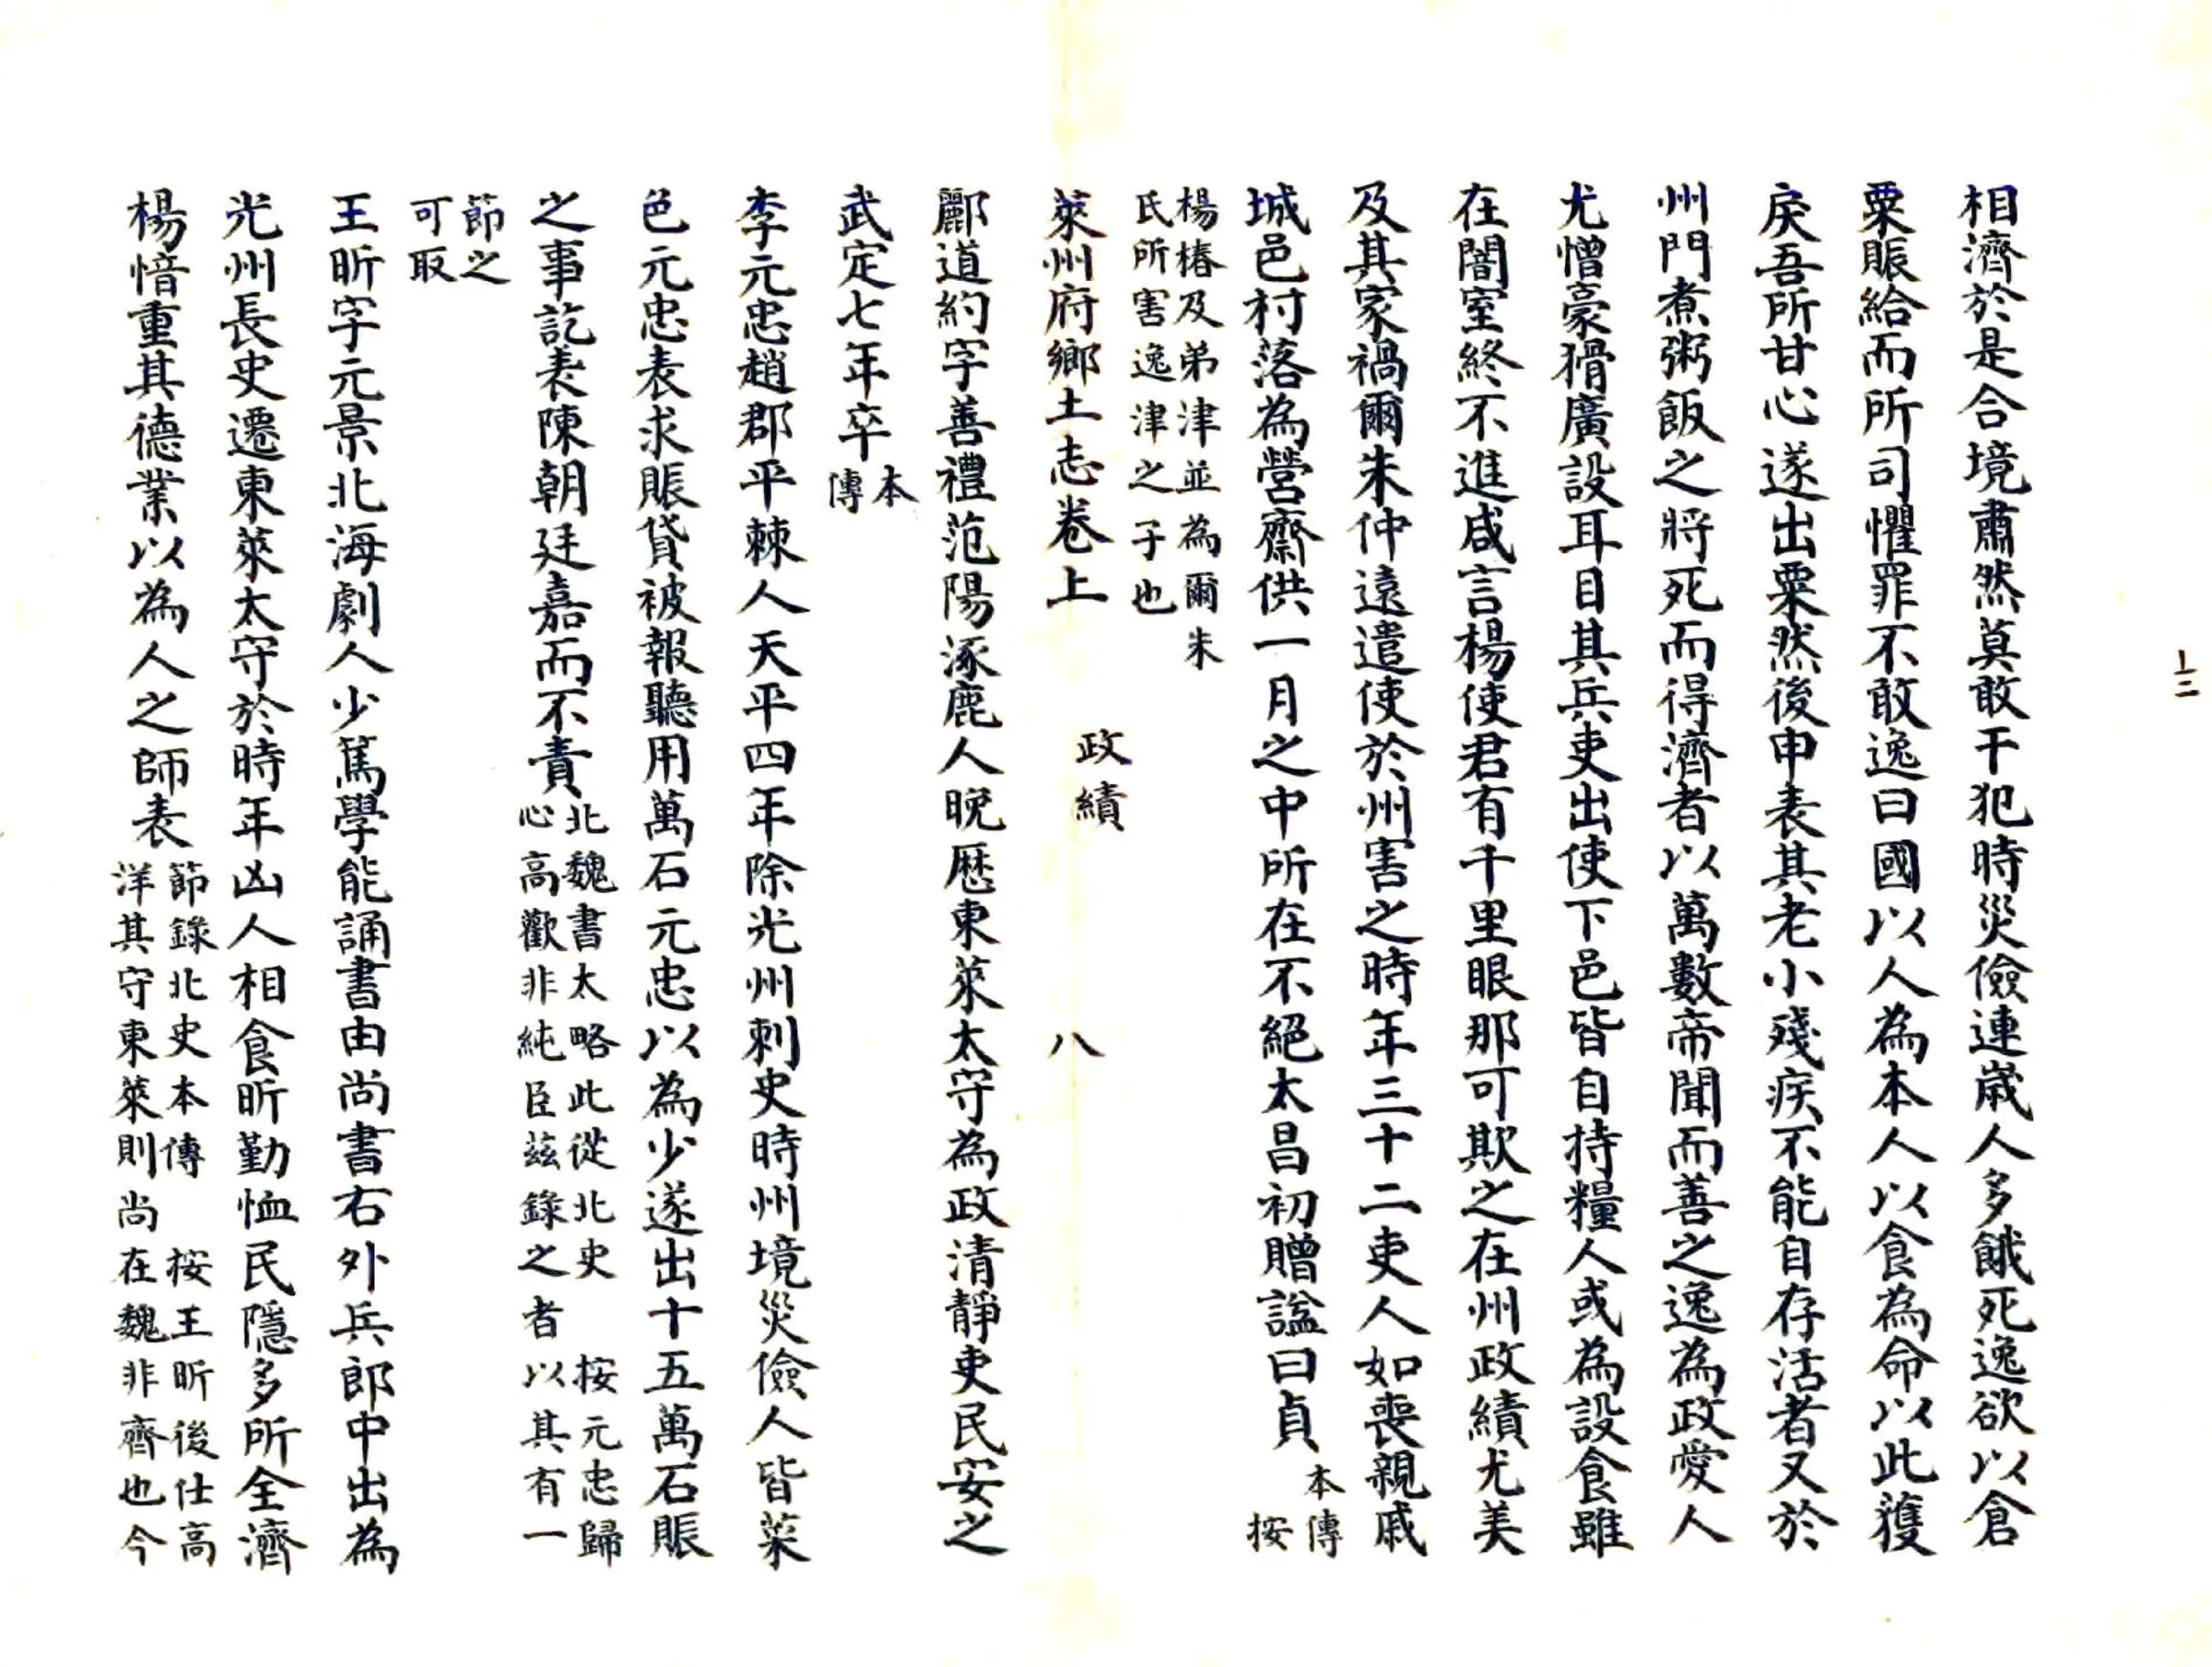 相濟於是合境肅然莫敢干犯時災儉連歲人多餓死逸欲以倉
粟賬給而所司懼罪不敢逸曰國以人為本人以食為命以此獲
戾吾所甘心遂出粟然後申表其老小殘疾不能自存活者又於
州門煮粥飯之將死而得濟者以萬數帝聞而善之逸為政愛人
尤憎豪猾廣設耳目其兵吏出使下邑皆自持糧人或為設食雖
在闇室終不進咸言楊使君有千里眼那可欺之在州政績尤美
及其家禍爾朱仲遠遣使於州害之時年三十二吏人如喪親戚
城邑村落為營齋供一月之中所在不絕太昌初贈諡曰貞本傳 按
楊椿及弟津並為爾朱
氏所害逸津之子也
萊州府鄉土志卷上 政績 八
酈道約字善禮范陽涿鹿人晚歷東萊太守為政清靜吏民安之
武定七年卒本傳
李元忠趙郡平棘人天平四年除光州刺史時州境災儉人皆菜
色元忠表求賬貸被報聽用萬石元忠以為少遂出十五萬石賬
之事訖表陳朝廷嘉而不責北魏書太略此從北史 按元忠歸
心高歡非純臣茲錄之者以其有一
節之
可取
王昕字元景北海劇人少篤學能誦書由尚書右外兵郎中出為
光州長史遷東萊太守於時年凶人相食昕勤恤民隱多所全濟
楊愔重其德業以為人之師表節錄北史本傳 按王昕後仕高
洋其守東萊則尚在魏非齊也今
十二